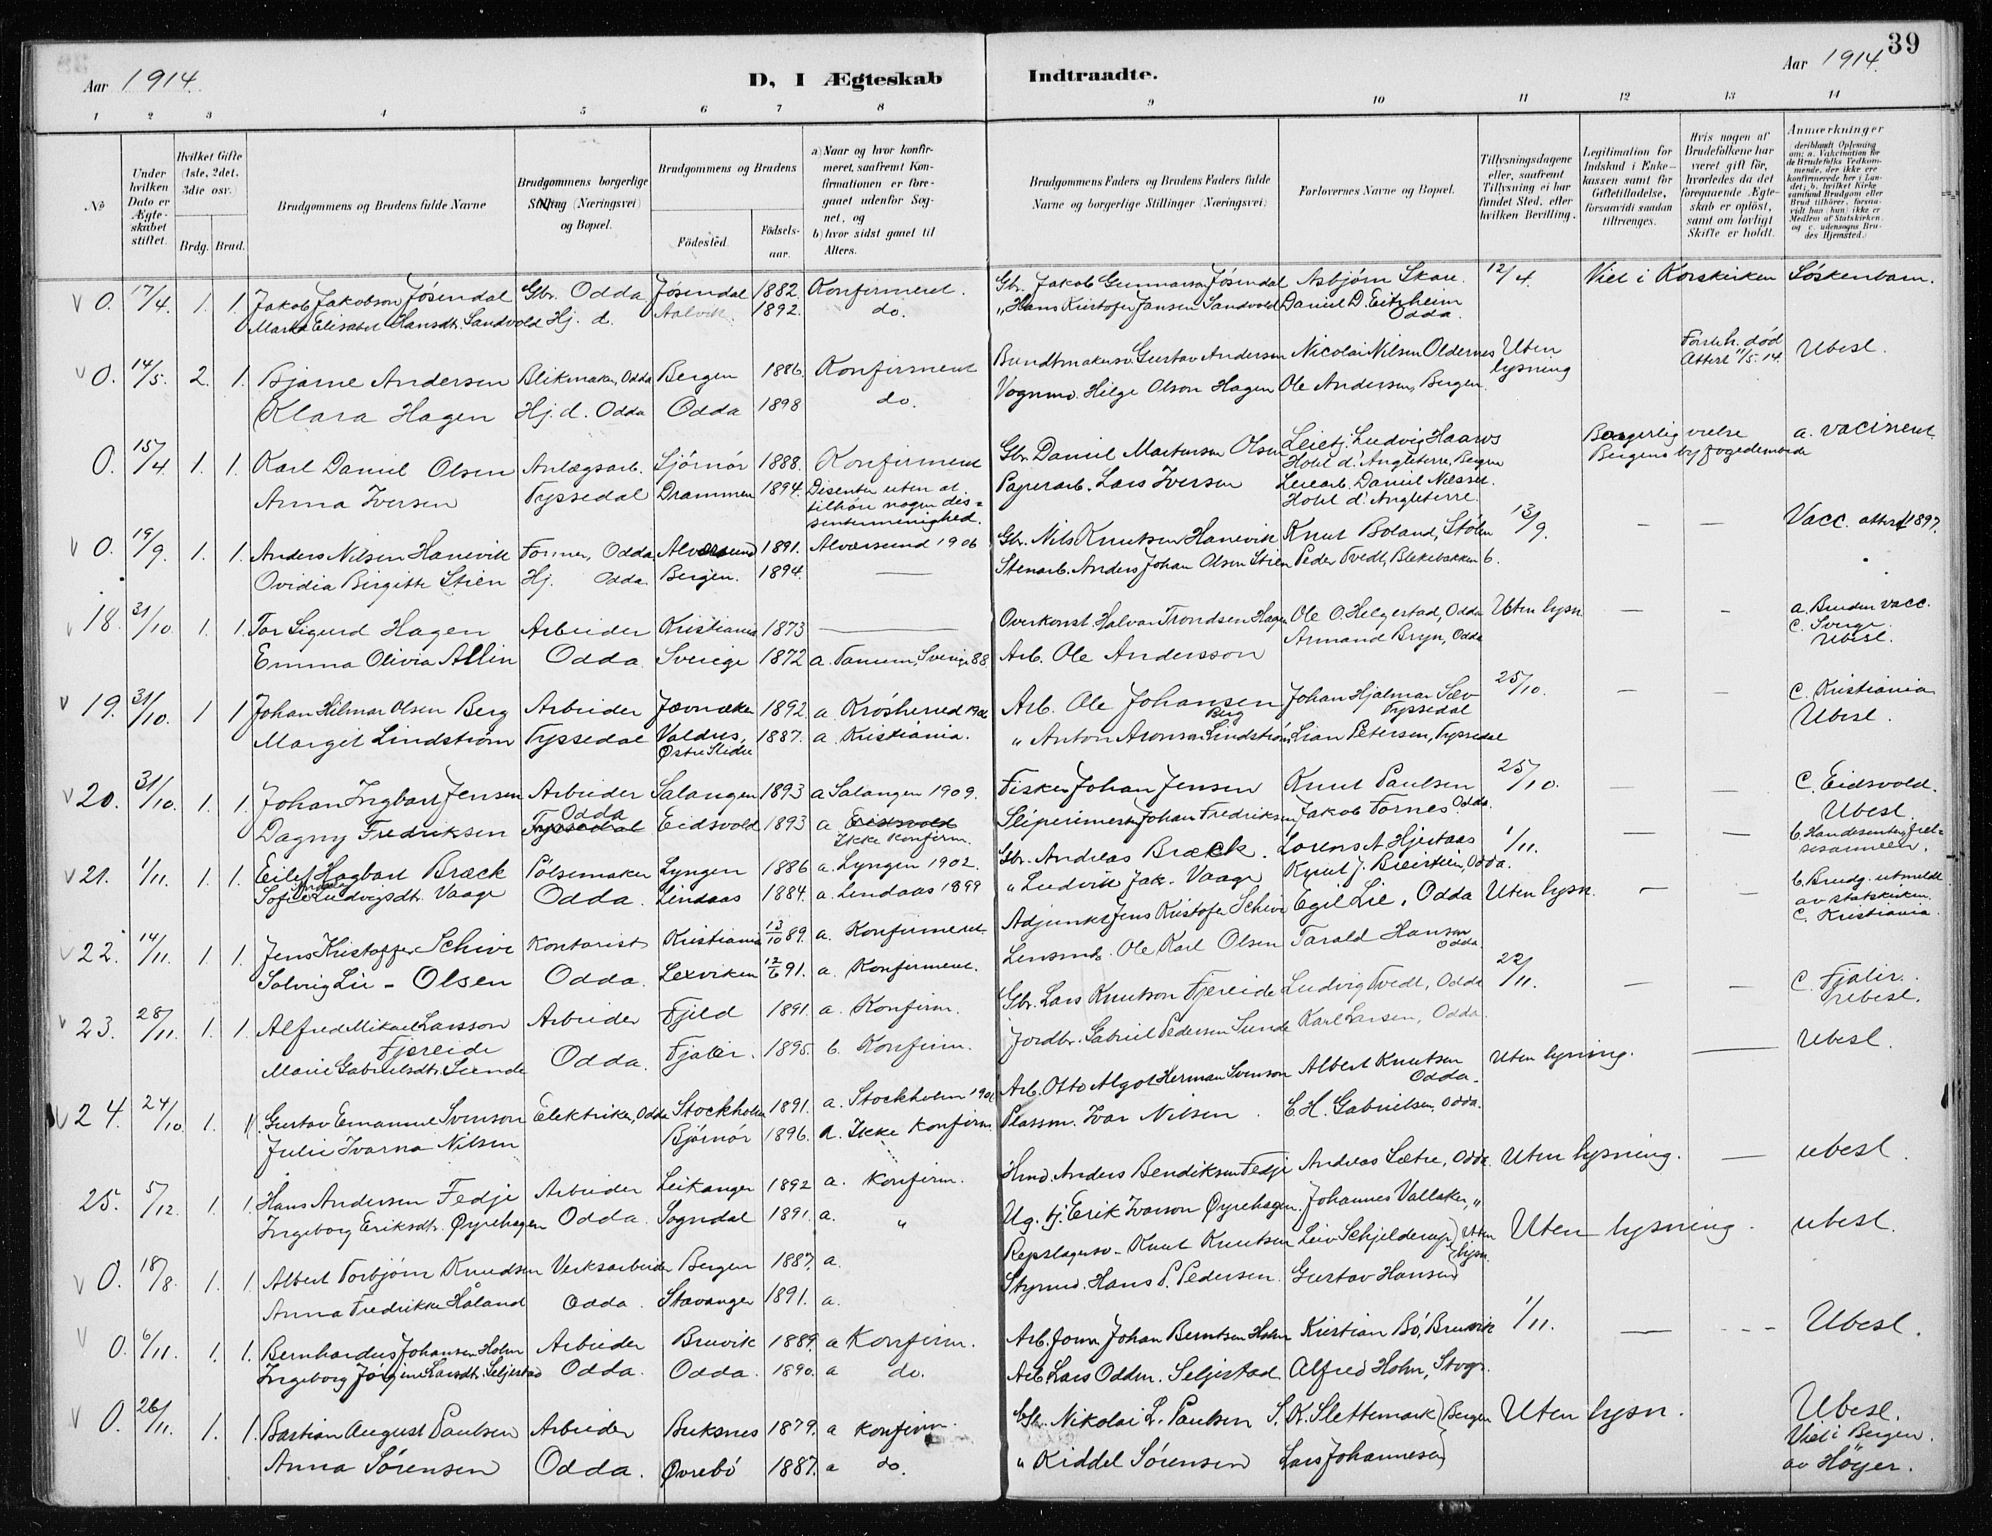 39
Aar 1914.
D, I Ægteskab Indtraadte.
Aar 1914.
1 2 3 4 5 6 7 8 9 10 11 12 13 14
No
Under hvilken Dato er Ægteskabet stiftet.
Hvilket Gifte (1ste, 2det, 3die osv.)
Brdg. Brud.
Brudgommens og Brudens fulde Navne
Brudgommens borgerlige Stilling (Næringsvei) og Bopæl.
Brudgommens og Brudens
Fødested. Fødsels-aar.
a) Naar og hvor konfirmeret, saafremt Konfirmationen er foregaaet udenfor Sognet, og
b) hvor sidst gaaet til Alters.
Brudgommens Faders og Brudens Faders fulde Navne og borgerlige Stillinger (Næringsvei)
Forlovernes Navne og Bopæl.
Tillysningsdagene eller, saafremt Tillysning ei har fundet Sted, efter hvilken Bevilling.
Legitimation for Indskud i Enkekassen samt for Giftetilladelse, forsaavidt saadan tiltrænges.
Hvis nogen af Brudefolkene har været gift før, hvorledes da det foregaaende Ægteskab er opløst, samt om lovligt Skifte er holdt.
Anmærkninger
0. 17/4. 1. 1. Jakob Jakobson Jøsendal Gbr. Odda Jøsendal 1882. Konfirmeret. Gbr. Jakob Gunnarson Jøsendal Asbjørn Skare. 12/4. Viet i Korskirken Søskenbarn.
Marta Elisabet Hansdt. Sandvold Hj. d. Aalvik. 1892. do. " Hans Kristofer Jansen Sandvold Daniel D. Eitrheim Odda.
0. 14/5. 2. 1. Bjarne Andersen Blikmaker, Odda Bergen 1886. Konfirmeret Buntmakersv. Gustav Andersen Nicolai Nilsen Oldernes Uten lysning død Attest 11/5. 14. Ubesl.
Klara Hagen Hj. d. Odda Odda 1898 do. Vognmd. Helge Olson Hagen Ole Andersen, Bergen
0. 15/4. 1. 1. Karl Daniel Olsen Anlægsarb. 1888. Konfirmeret Gbr. Daniel Martensen Olsen Ludvig Haarvs Hotel d'Angleterre, Bergen Borgerlig vielse Bergens byfogedembede a. vacineret
Anna Iversen Tyssedal Drammen 1894. Disenter uten at tilhøre nogen dissentermenighed. Papirarb. Lars Iversen Daniel Nilssen. Hotel d'Angleterre.
0. 19/9. 1. 1. Anders Nilsen Hanevik Former, Odda. Alversund 1891. Alversund 1906 Gbr. Nils Knutsen Hanevik Knut Boland, Stølen 13/9. — — Vacc. attest 1897.
Ovidia Bergitte Stien Hj. Odda. Bergen. 1894. — Stenarb. Anders Johan Olsen Stien Peder Tvedt, Blekebakken 6.
18. 31/10. 1. 1. Tor Sigurd Hagen Arbeider Kristiania 1873 — Overkonst Halvar Trondsen Hagen Ole O. Helgestad, Odda Uten lysn. — - a. Bruden vacc. C. Sverge. Ubesl.
Emma Olivia Allin Odda. Sverige 1872 a. Tanum, Sverige 88 Arb. Ole Andersson Armand Bryn, Odda
19. 31/10. 1 1 Johan Hilmar Olsen Berg Arbeider Jævnaker 1892 a. Krødsherred 1906 Arb. Ole Johansen Berg Johan Hjalmar Sæv Tyssedal 25/10. — — C. Kristiania Ubesl.
Margit Lindstrøm Tyssedal Valdres, Østre Slidre 1887. a. Kristiania. " Anton Aronsen Lindstrøm Petersen, Tyssedal
20. 31/10. 1. 1. Johan Ingbart Jensen Arbeider Salangen 1893 a Salangen 1909. Fisker Johan Jensen Knut Paulsen 25/10. — — C. Eidsvold. Ubesl.
Dagny Fredriksen Odda Tyssedal Eidsvold 1893 a Eidsvold Ikke Konfirm. Johan Fredriksen Jakob Fornes Odda.
21. 1/11. 1. 1. Eilef Hagbart Bræck Pølsemaker Lyngen 1886 a. Lyngen 1902. Gbr. Andreas Bræck. Lorens A Hjertaas 1/11. — —
Sofie Ludvigsdt. Vaage Odda. Lindaas 1884. a. Lindaas 1899 " Ludvik Jak. Vaage Knut J. Odda.
22. 14/11. 1. 1. Jens Kristoffer Schive Kontorist Kristiania 13/10 89. a. Konfirmeret Adjunkt Jens Kristofer Schive Egil Lie, Odda Uten lysn. — — b. Brudg. utmeldt av statskirken. C. Kristiania.
Solveig Lie - Olsen Odda. Lexviken 12/6 91. a. Konfirmeret. Lensmd. Ole Karl Olsen Tarald Hansen Odda.
23. 28/11. 1. 1. Alfred Mikael Larsson Fjereide Arbeider Fjeld 1891. a. Konfirm. Gbr. Lars Knutson Fjereide Ludvig Tvedt, Odda 22/11. — — C. Fjaler. Ubesl.
Marie Gabrielsdt. Sunde Odda. Fjaler. 1895. b. Konfirm. Jordbr. Gabriel Pedersen Sunde Karl Larsen, Odda.
24. 24/10. 1. 1. Gustav Emanuel Svenson Elektriker, Odda Stockholm 1891. a. Stockholm Arb. Otto Algot Herman Svenson Albert Knutsen Odda. Uten lysning. — Ubesl.
Julie Ivarna Nilsen Bjørnør 1896. a. Ikke Konfirm. Plassm. Ivar Nilsen. C. H. Gabrielsen, Odda.
25. 5/12. 1. 1. Hans Andersen Fedje Arbeider Leikanger 1892 a. Konfirm. Hmd. Anders Bendiksen Fedje Andreas Sætre, Odda. Uten lysning. — ubesl.
Ingeborg Eriksdt. Øyrehagen Odda. Sogndal 1891. a. " Erik Ivarson Øyrehagen. Johannes Vallaker, "
0. 18/8. 1. 1. Albert Torbjørn Knudsen Verksarbeider Bergen 1887. a. Repslagersv. Knut Knutsen Leiv Schjelderup Uten lysn. Uten lysning. ubesl.
Anna Fredrikke Håland Odda. Stavanger 1891. a. Styrmd. Hans P. Pedersen. Gustav Hansen
0. 6/11. 1. 1. Bernhardus Johansen Holm Arbeider Bruvik 1889. a Konfirm. Arb. Johan Berntsen Holm Kristian Bø, Bruvik 1/11. — - - - Ubesl.
Ingeborg Jørgine Larsdt. Seljestad Odda. Odda. 1890. a do. Arb. Lars Odden. Seljestad Alfred Holm,
0. 26/11. 1. 1. Bastian August Paulsen Arbeider Buksnes 1879. a Konfirm. Gbr. Nikolai L. Paulsen S. K. Slettemark Bergen Uten lysn. Ubesl. Viet i Bergen. av Høyer.
Anna Sørensen Odda. Øvrebø 1887. a do. " Kiddel Sørensen Lars Johannesen